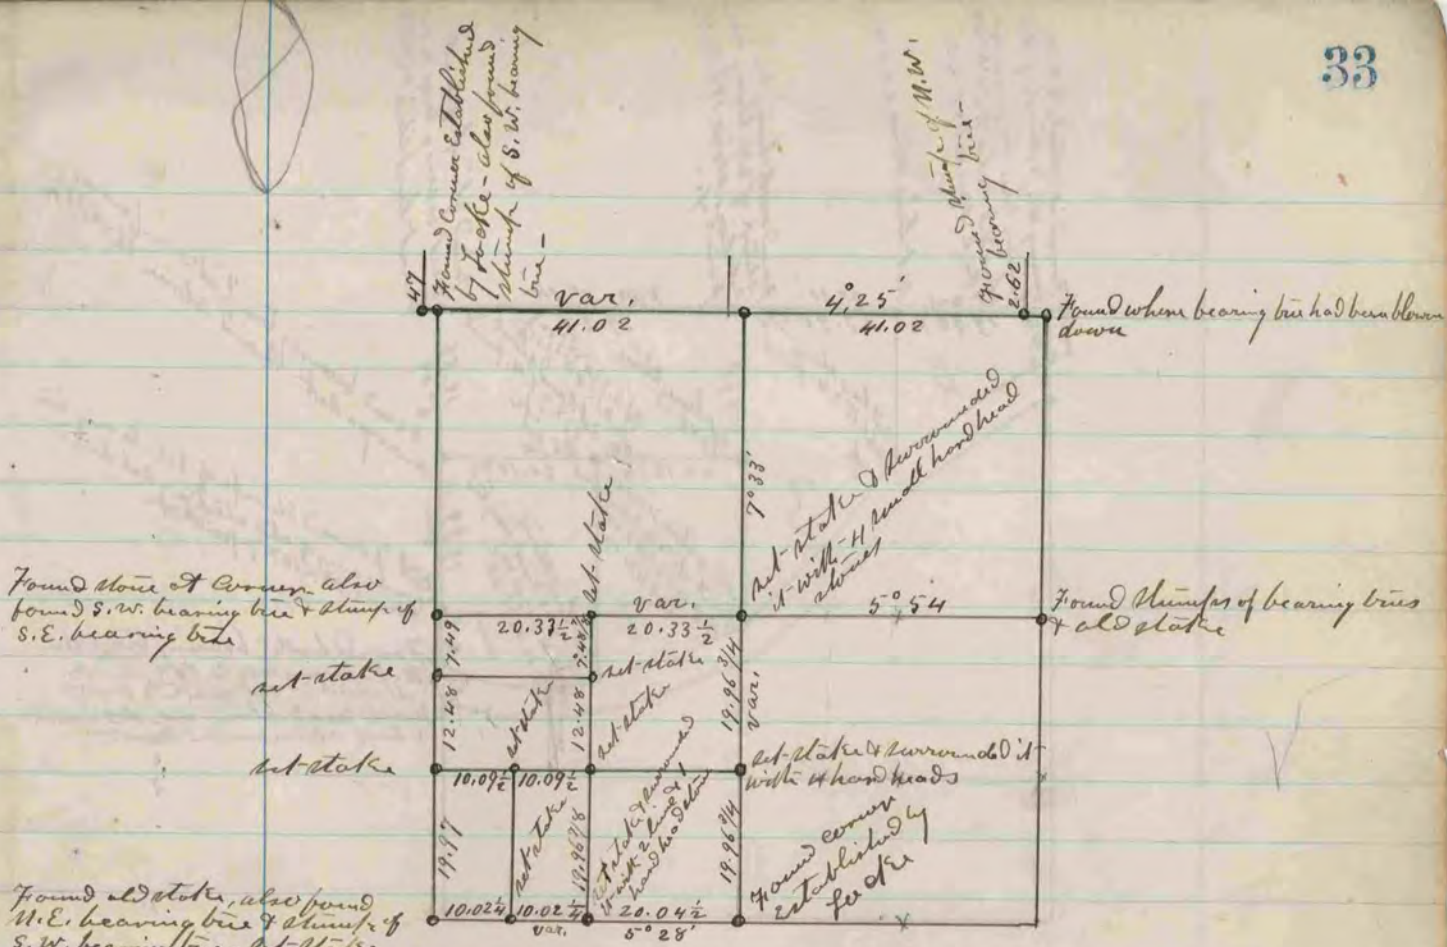 33
Found Corner Established
by Locke - also found
stump of S.W. bearing
tree -
Found stump of N.W.
bearing tree -
47
var.
41.02
4°, 25'
41.02
2.62
Found where bearing tree had been blown
down
7° 33'
set stake & surrounded
it with 4 small hard head
stones
set stake
Found stone at Corner also
found S.W. bearing tree & stump of
S.E. bearing tree
20.33 1/2
var.
20.33 1/2
5° 54
Found stumps of bearing trees
& old stake
7.49
set stake
set stake
12.48
set stake
12.48
set stake
19.96 3/4
var.
set stake
10.09 1/2
10.09 1/2
set stake & surrounded it
with 4 hard heads
19.97
set stake
19.96 7/8
set stake & surrounded
it with 2 lime & 1
hard head stone
19.96 3/4
Found corner
established by
Locke
Found old stake, also found
N.E. bearing tree & stump of
S.W. bearing tree set stake
10.02 1/4
10.02 1/4
var.
20.04 1/2
5° 28'